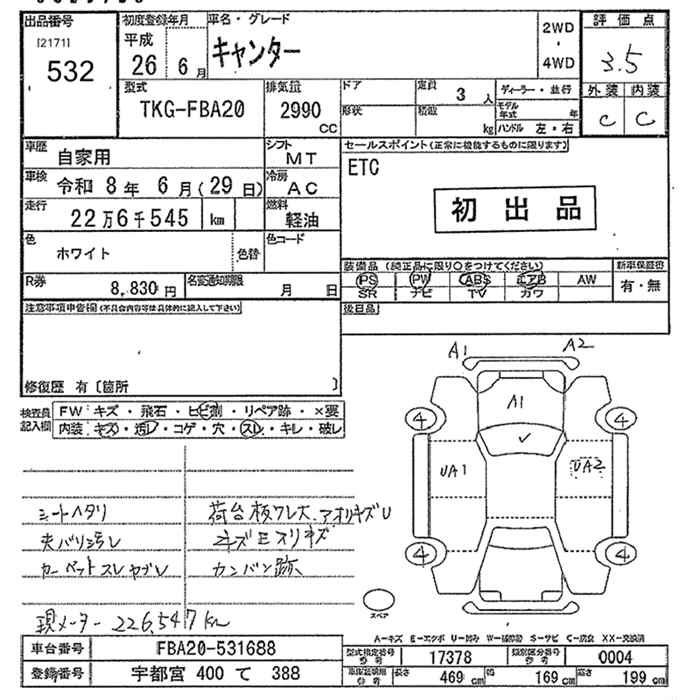 出品番号
[2171]
532
初度登録年月
平成
26 6月
車名・グレード
キャンター
2WD
・
4WD
評価点
3.5
外装 内装
C C
型式
TKG-FBA20
排気量
2990
CC
ドア
形状
定員
3人
積載
kg
ディーラー・並行
モデル年式 年
ハンドル 左・右
車歴
自家用
シフト
MT
車検
令和 8年 6月(29日)
冷房
AC
走行
22万6千545 km
燃料
軽油
色
ホワイト
色替
色コード
R券
8,830円
名変通知期限
月 日
セールスポイント(正常に機能するものに限ります)
ETC
初出品
装備品(純正品に限り○をつけてください)
PS PW ABS エアB AW
SR ナビ TV カワ
新車保証書
有・無
後日品
注意事項申告欄(不具合内容等は具体的に記入して下さい)
修復歴 有〔箇所 〕
検査員記入欄
FW キズ・飛石・ヒビ割・リペア跡・×要
内装 キズ・汚レ・コゲ・穴・スレ・キレ・破レ
シートヘタリ
カーペットスレヤブレ
荷台板ワレ大、アオリキズU
カンバン跡
現メーター 226,547km
A1 A2
A1
4 4
UA1 UA2
4 4
スペア
A-キズ E-エクボ U-凹み W-補修跡 S-サビ C-腐食 XX-交換済
車台番号 FBA20-531688
登録番号 宇都宮 400 て 388
型式指定番号 参考 17378
類別区分番号 参考 0004
長さ 469 cm 幅 169 cm 高さ 199 cm